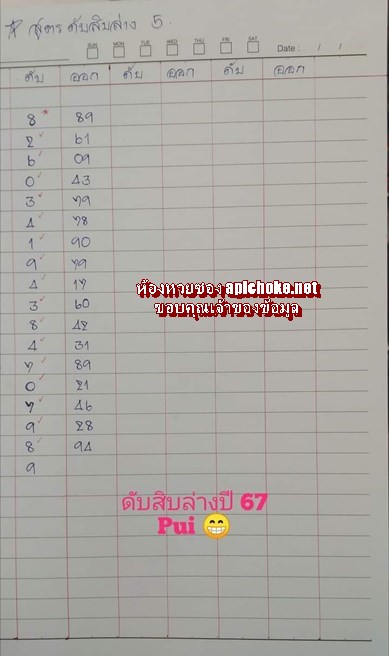 * สูตรดับสิบล่าง 5.
SUN MON TUE WED THU FRI SAT Date : / /
ดับ ออก ดับ ออก ดับ ออก
8* 89
2✓ 61
6✓ 09
0✓ 43
3* 79
4 78
1✓ 90
9✓ 79
4✓ 17
3✓ 60
8✓ 42
4✓ 31
7✓ 89
0✓ 21
7✓ 46
9✓ 28
8✓ 94
9
ห้องหวยซอง apichoke.net
ขอบคุณเจ้าของข้อมูล
ดับสิบล่างปี 67
Pui 😁